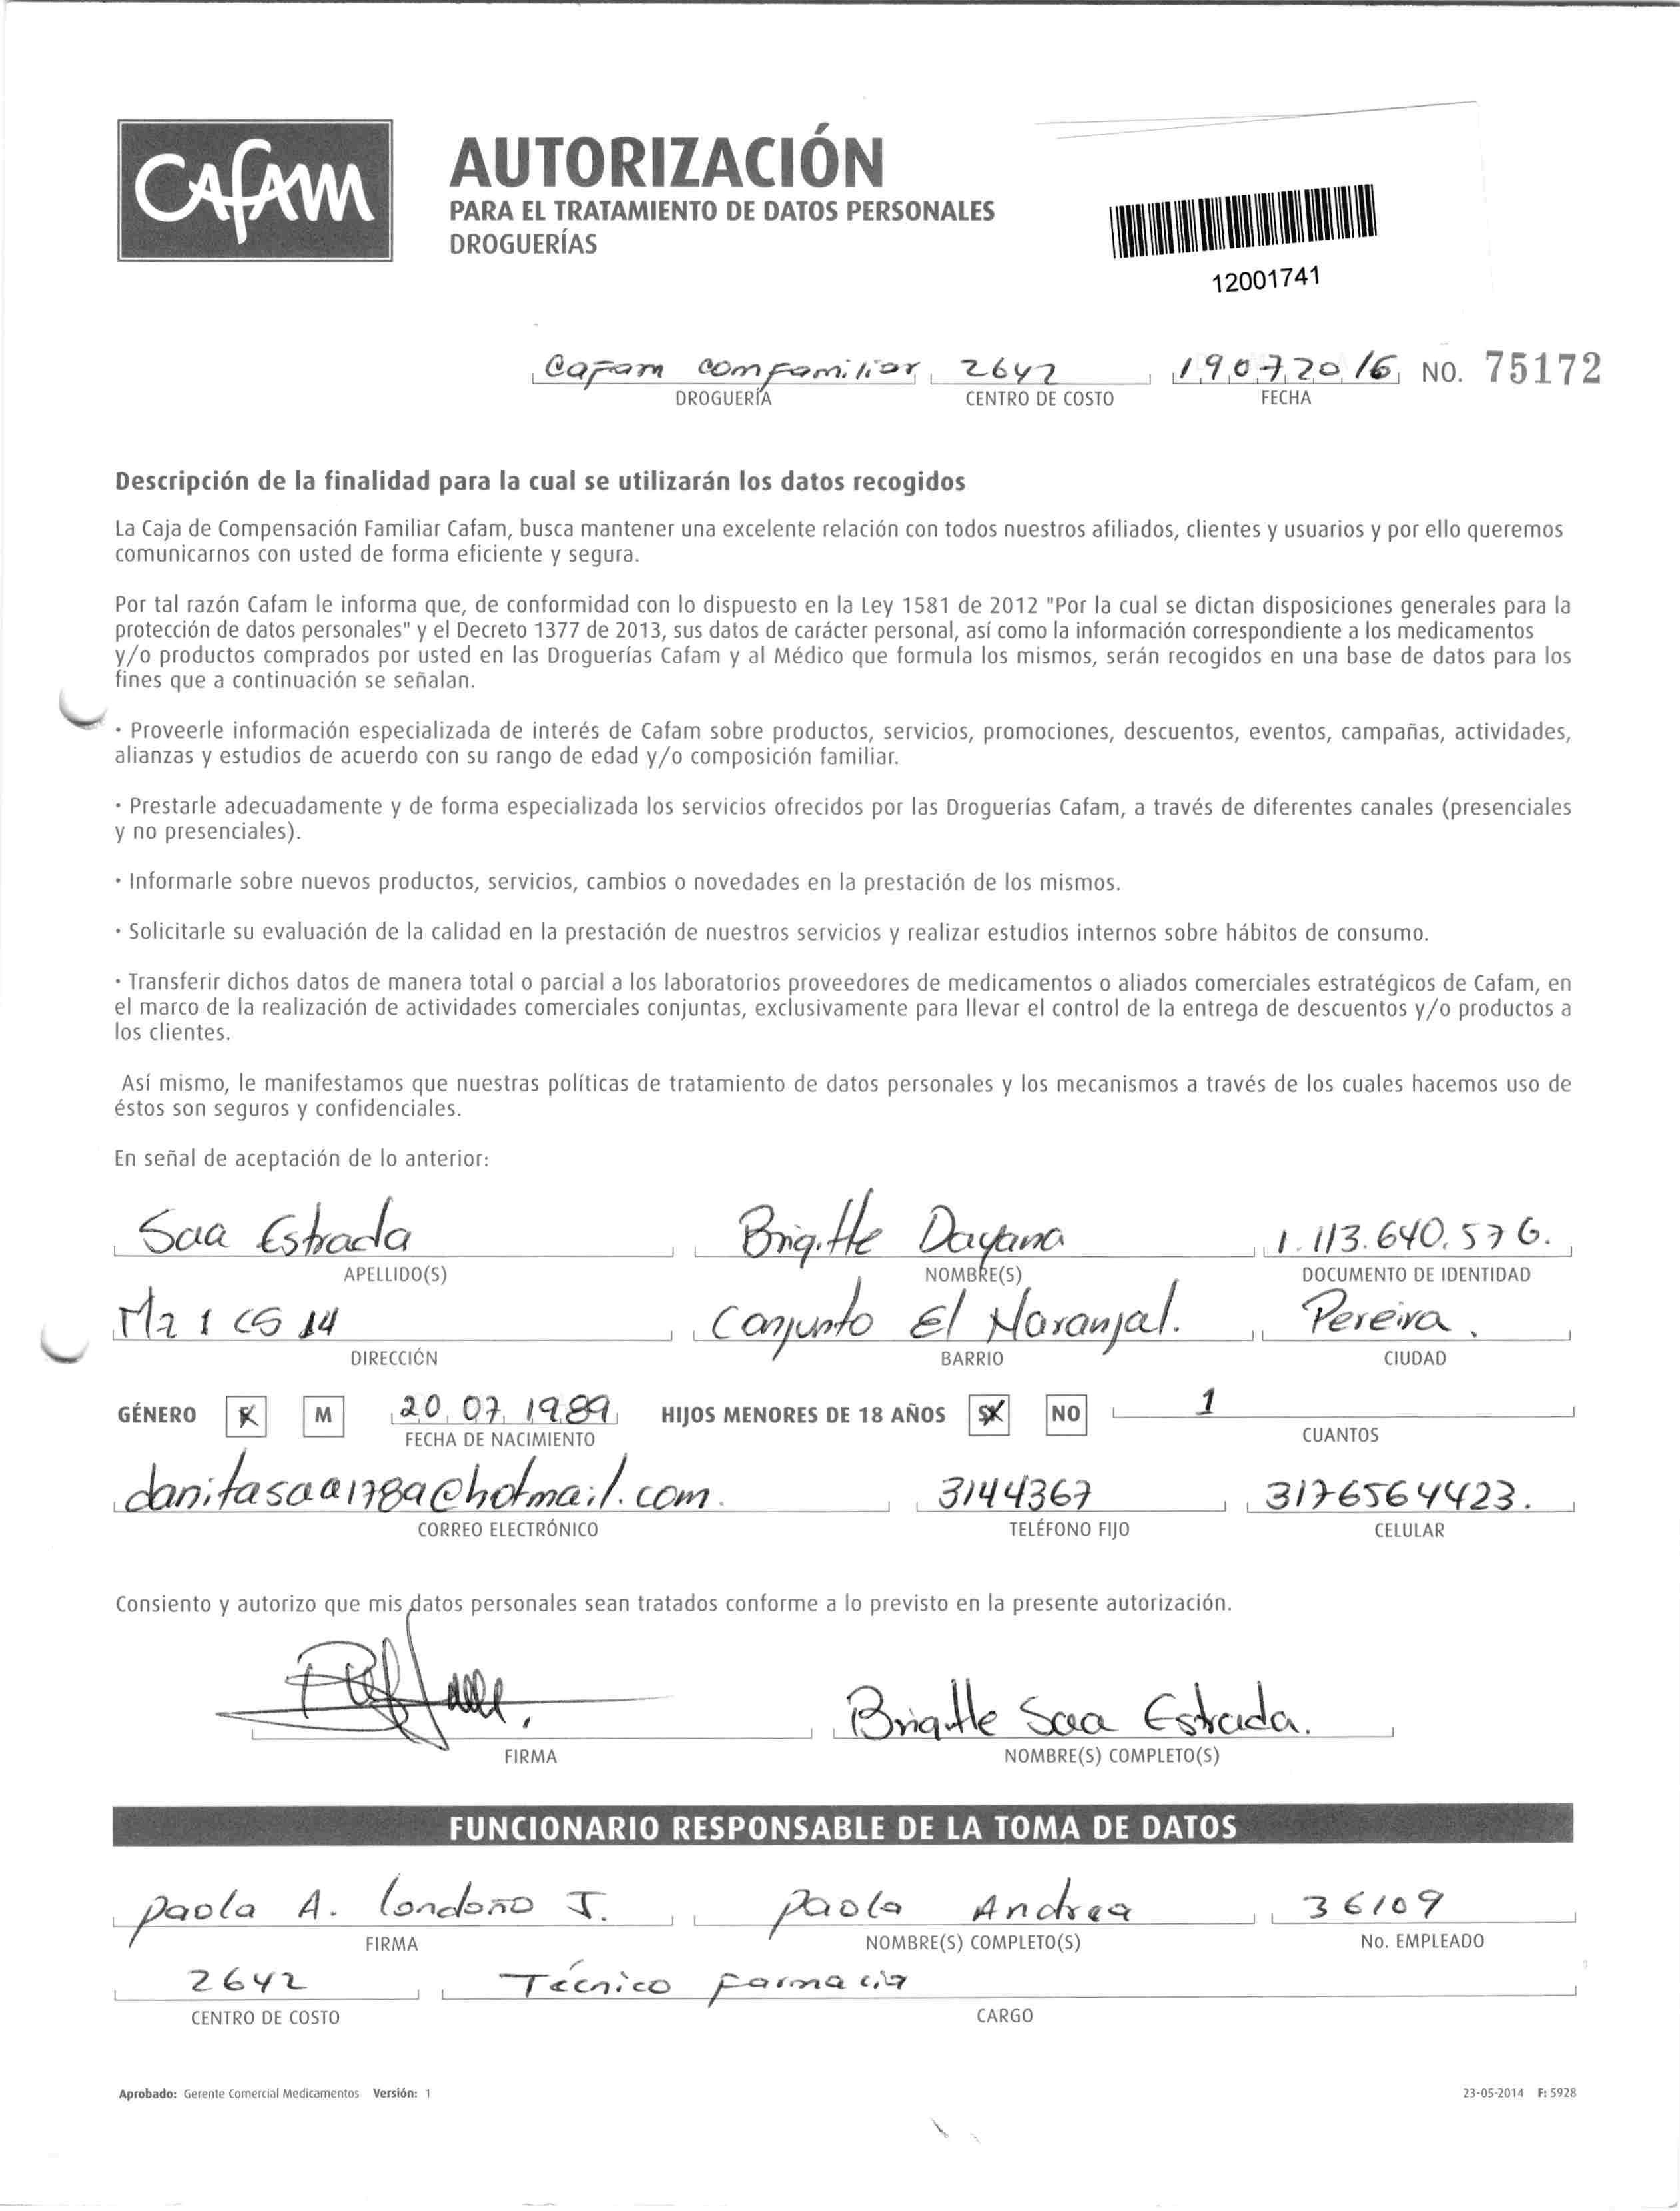 CAFAM
AUTORIZACIÓN
PARA EL TRATAMIENTO DE DATOS PERSONALES
DROGUERÍAS
12001741
Cafam comfamiliar 2642 19072016 NO. 75172
DROGUERÍA CENTRO DE COSTO FECHA
Descripción de la finalidad para la cual se utilizarán los datos recogidos
La Caja de Compensación Familiar Cafam, busca mantener una excelente relación con todos nuestros afiliados, clientes y usuarios y por ello queremos
comunicarnos con usted de forma eficiente y segura.
Por tal razón Cafam le informa que, de conformidad con lo dispuesto en la Ley 1581 de 2012 "Por la cual se dictan disposiciones generales para la
protección de datos personales" y el Decreto 1377 de 2013, sus datos de carácter personal, así como la información correspondiente a los medicamentos
y/o productos comprados por usted en las Droguerías Cafam y al Médico que formula los mismos, serán recogidos en una base de datos para los
fines que a continuación se señalan.
· Proveerle información especializada de interés de Cafam sobre productos, servicios, promociones, descuentos, eventos, campañas, actividades,
alianzas y estudios de acuerdo con su rango de edad y/o composición familiar.
· Prestarle adecuadamente y de forma especializada los servicios ofrecidos por las Droguerías Cafam, a través de diferentes canales (presenciales
y no presenciales).
· Informarle sobre nuevos productos, servicios, cambios o novedades en la prestación de los mismos.
· Solicitarle su evaluación de la calidad en la prestación de nuestros servicios y realizar estudios internos sobre hábitos de consumo.
· Transferir dichos datos de manera total o parcial a los laboratorios proveedores de medicamentos o aliados comerciales estratégicos de Cafam, en
el marco de la realización de actividades comerciales conjuntas, exclusivamente para llevar el control de la entrega de descuentos y/o productos a
los clientes.
Así mismo, le manifestamos que nuestras políticas de tratamiento de datos personales y los mecanismos a través de los cuales hacemos uso de
éstos son seguros y confidenciales.
En señal de aceptación de lo anterior:
Saa Estrada Brigitte Dayana 1.113.640.576.
APELLIDO(S) NOMBRE(S) DOCUMENTO DE IDENTIDAD
Mz 1 CS 14 Conjunto El Naranjal. Pereira.
DIRECCIÓN BARRIO CIUDAD
GÉNERO F M 20 07 1989 HIJOS MENORES DE 18 AÑOS SI NO 1
FECHA DE NACIMIENTO CUANTOS
danitasaa1789@hotmail.com. 3144367 3176564423.
CORREO ELECTRÓNICO TELÉFONO FIJO CELULAR
Consiento y autorizo que mis datos personales sean tratados conforme a lo previsto en la presente autorización.
Brigitte Saa Estrada.
FIRMA NOMBRE(S) COMPLETO(S)
FUNCIONARIO RESPONSABLE DE LA TOMA DE DATOS
Paola A. Londoño J. Paola Andrea 36109
FIRMA NOMBRE(S) COMPLETO(S) No. EMPLEADO
2642 Tecnico Farmacia
CENTRO DE COSTO CARGO
Aprobado: Gerente Comercial Medicamentos Versión: 1 23-05-2014 F: 5928